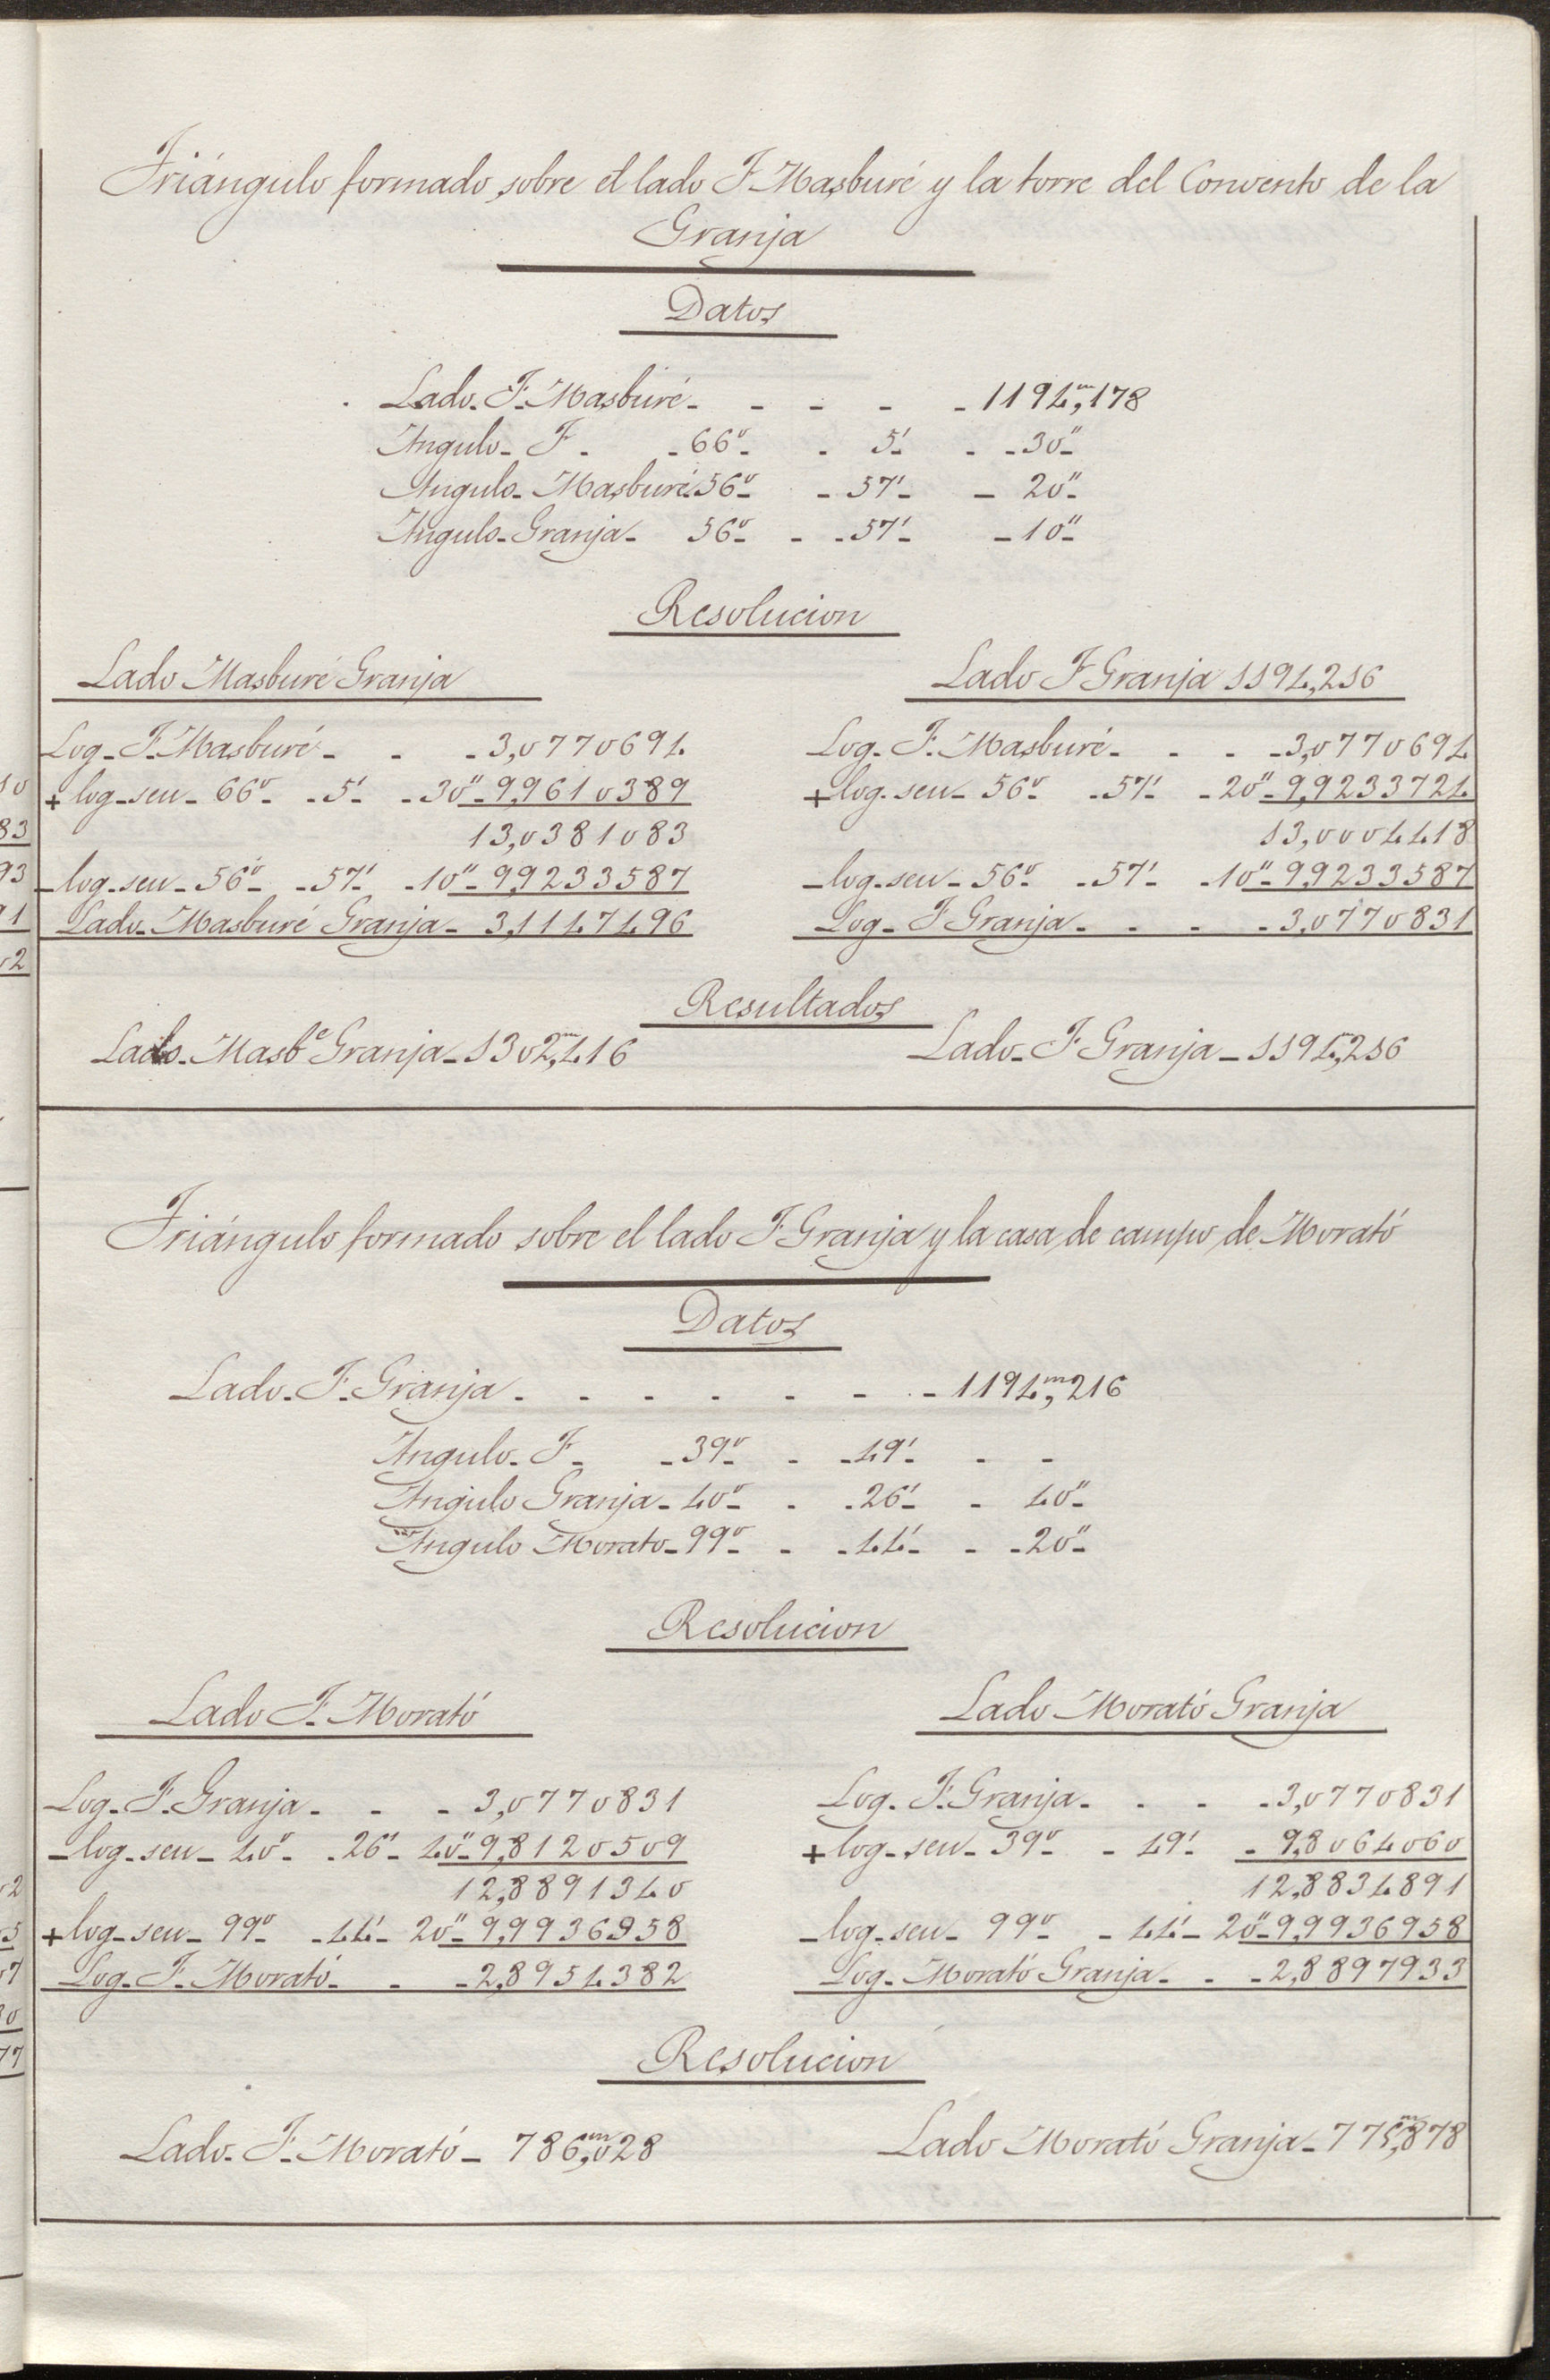 Triángulo formado sobre el lado F. Masburé y la torre del Convento de la
Granja
Datos
Lado. F. Masburé - - - - - 1194,m178
Angulo - F - - 66º - - 5' - - 30"
Angulo - Masburé 56º - 57' - 20"
Angulo - Granja - 56º - - 57' - 10"
Resolucion
Lado Masburé Granja
Log - F. Masburé - - - 3,0770694
+ log - sen - 66º - 5' - 30" - 9,9610389
13,0381083
- log - sen - 56º - 57' - 10" - 9,9233587
Lado - Masburé Granja - 3,1147496
Lado F Granja 1194,216
Log - F. Masburé - - - 3,0770694
+ log - sen - 56º - 57' - 20" - 9,9233724
13,0004418
- log - sen - 56º - 57' - 10" - 9,9233587
Log - F Granja - - - - 3,0770831
Resultados
Lado - Masb.e Granja - 1302,m416
Lado - F Granja - 1194,m216
Triángulo formado sobre el lado F. Granja y la casa de campo de Morató
Datos
Lado - F. Granja - - - - - - - 1194,m216
Angulo - F - - 39º - - 49' - -
Angulo Granja - 40º - - 26' - 40"
Angulo Morato - 99º - - 44' - - 20"
Resolucion
Lado F. Morató
Log - F. Granja - - - 3,0770831
- log - sen - 40º - 26' - 40" - 9,8120509
12,8891340
+ log - sen - 99º - 44' - 20" - 9,9936958
Log - F. Morató - - - 2,8954382
Lado Morató Granja
Log - F. Granja - - - - 3,0770831
+ log - sen - 39º - 49' - 9,8064060
12,8834891
- log - sen - 99º - 44' - 20" - 9,9936958
Log - Morató Granja - - - 2,8897933
Resolucion
Lado - F. Morató - 786,m028
Lado Morató Granja - 775,m878